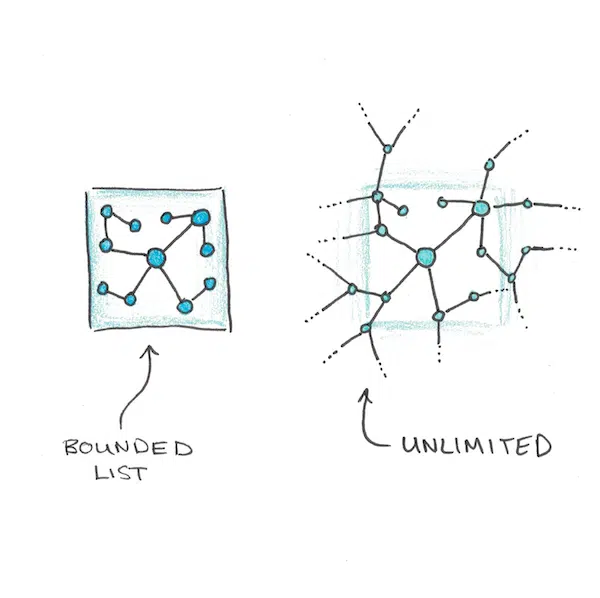 BOUNDED
LIST
UNLIMITED